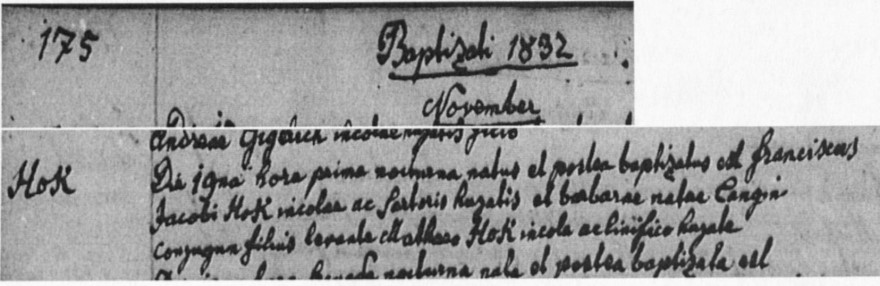 175
Baptizati 1832
November
Andreae incolae hujatis filio
HoK
Die 19na hora prima nocturna natus et postea baptizatus est Franciscus
Jacobi HoK incolae ac Sartoris hujatis et barbarae natae Langin
Conjugum filius levante Mathaeo HoK incola ac linifico hujate
hora nocturna nata et postea baptizata est